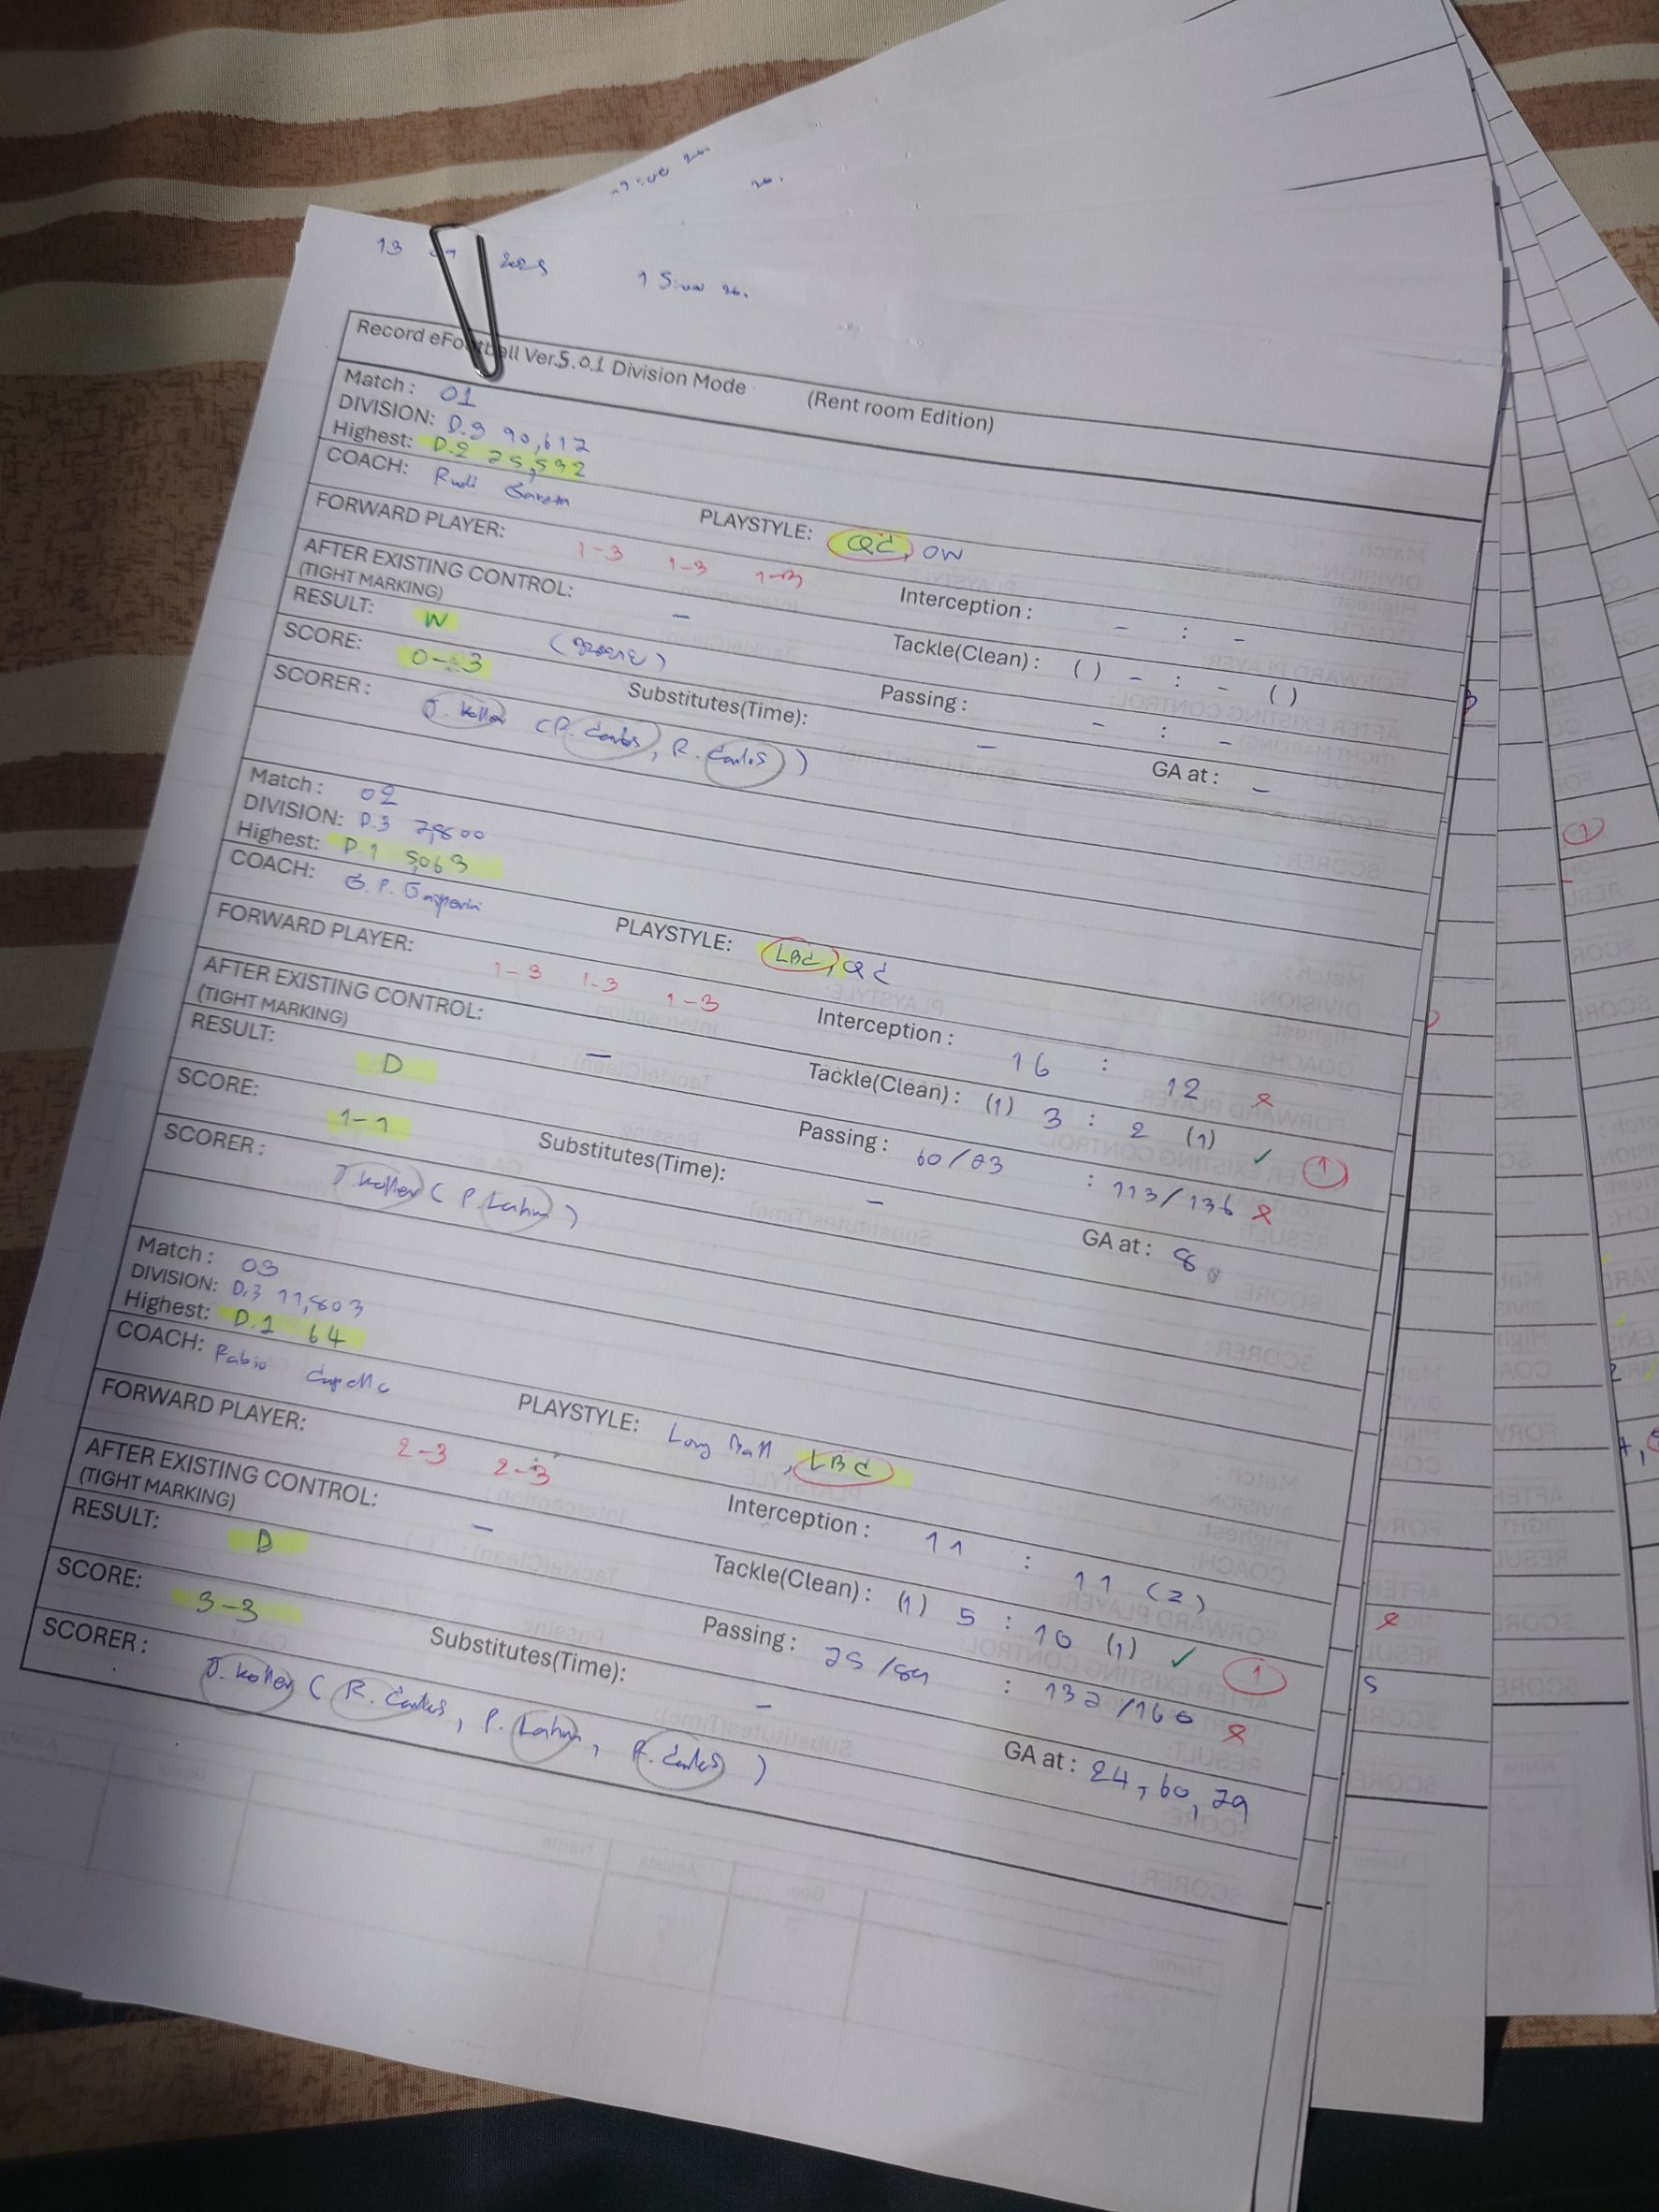 13 2025
Record eFootball Ver.5.0.1 Division Mode (Rent room Edition)
Match : 01
DIVISION: D.3 90,617
Highest: D.2 25,592
COACH: Rudi PLAYSTYLE: QC, OW
FORWARD PLAYER: 1-3 1-3 1-3 Interception : - : -
AFTER EXISTING CONTROL: - Tackle(Clean) : ( ) - : - ( )
(TIGHT MARKING)
RESULT: W Passing : - : -
SCORE: 0-3 Substitutes(Time): - GA at : -
SCORER : J. Koller (R. Carlos, R. Carlos)
Match : 02
DIVISION: D.3 7,800
Highest: D.1 5,063
COACH: G. P. Gasperini PLAYSTYLE: LBC, QC
FORWARD PLAYER: 1-3 1-3 1-3 Interception : 16 : 12
AFTER EXISTING CONTROL: - Tackle(Clean) : (1) 3 : 2 (1) ✓ 1
(TIGHT MARKING)
RESULT: D Passing : 60/83 : 113/136
SCORE: 1-1 Substitutes(Time): - GA at : 8
SCORER : J. Koller (P. Lahm)
Match : 03
DIVISION: D.3 11,803
Highest: D.1 64
COACH: Fabio Capello PLAYSTYLE: Long Ball, LBC
FORWARD PLAYER: 2-3 2-3 Interception : 11 : 11 (2)
AFTER EXISTING CONTROL: - Tackle(Clean) : (1) 5 : 10 (1) ✓ 1
(TIGHT MARKING)
RESULT: D Passing : 75/89 : 132/160
SCORE: 3-3 Substitutes(Time): - GA at : 24, 60, 79
SCORER : J. Koller (R. Carlos, P. Lahm, R. Carlos)